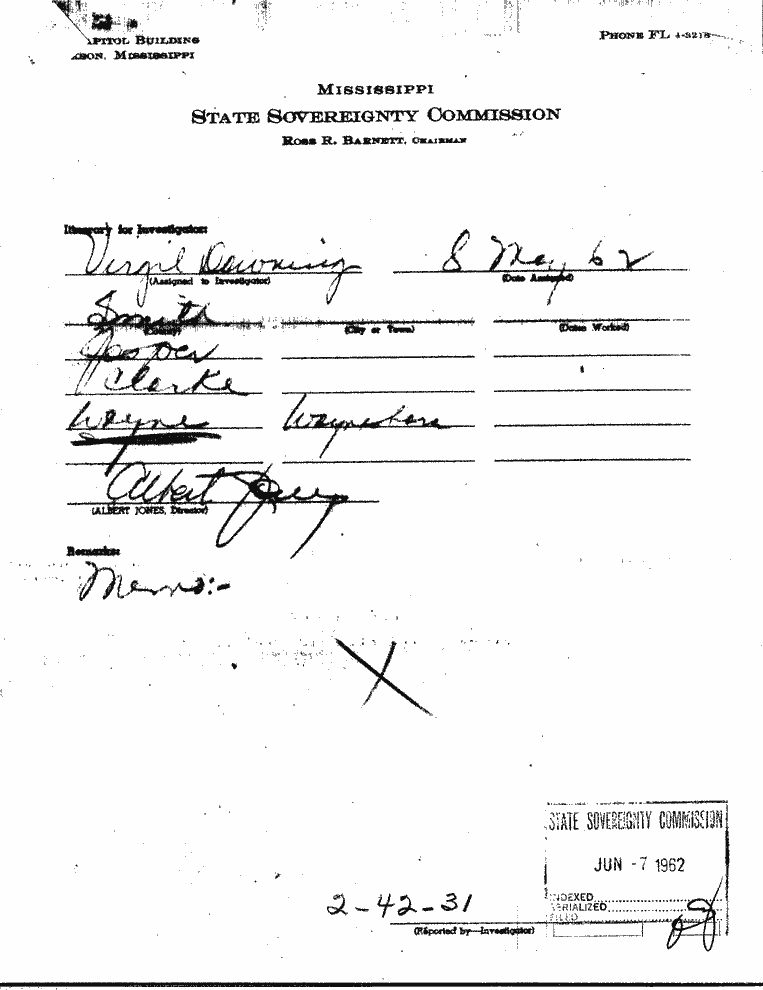 APITOL BUILDING PHONE FL 4-3218
SON, MISSISSIPPI
MISSISSIPPI
STATE SOVEREIGNTY COMMISSION
ROSS R. BARNETT, CHAIRMAN
Itinerary for Investigator:
Virgil Downing 8 May 62
(Assigned to Investigator) (Date Assigned)
Smith
(County) (City or Town) (Dates Worked)
Jasper
Clarke
Wayne Waynesboro
Albert Jones
(ALBERT JONES, Director)
Remarks:
Memo:-
X
STATE SOVEREIGNTY COMMISSION
JUN -7 1962
INDEXED
SERIALIZED
FILED
2-42-31
(Reported by—Investigator)